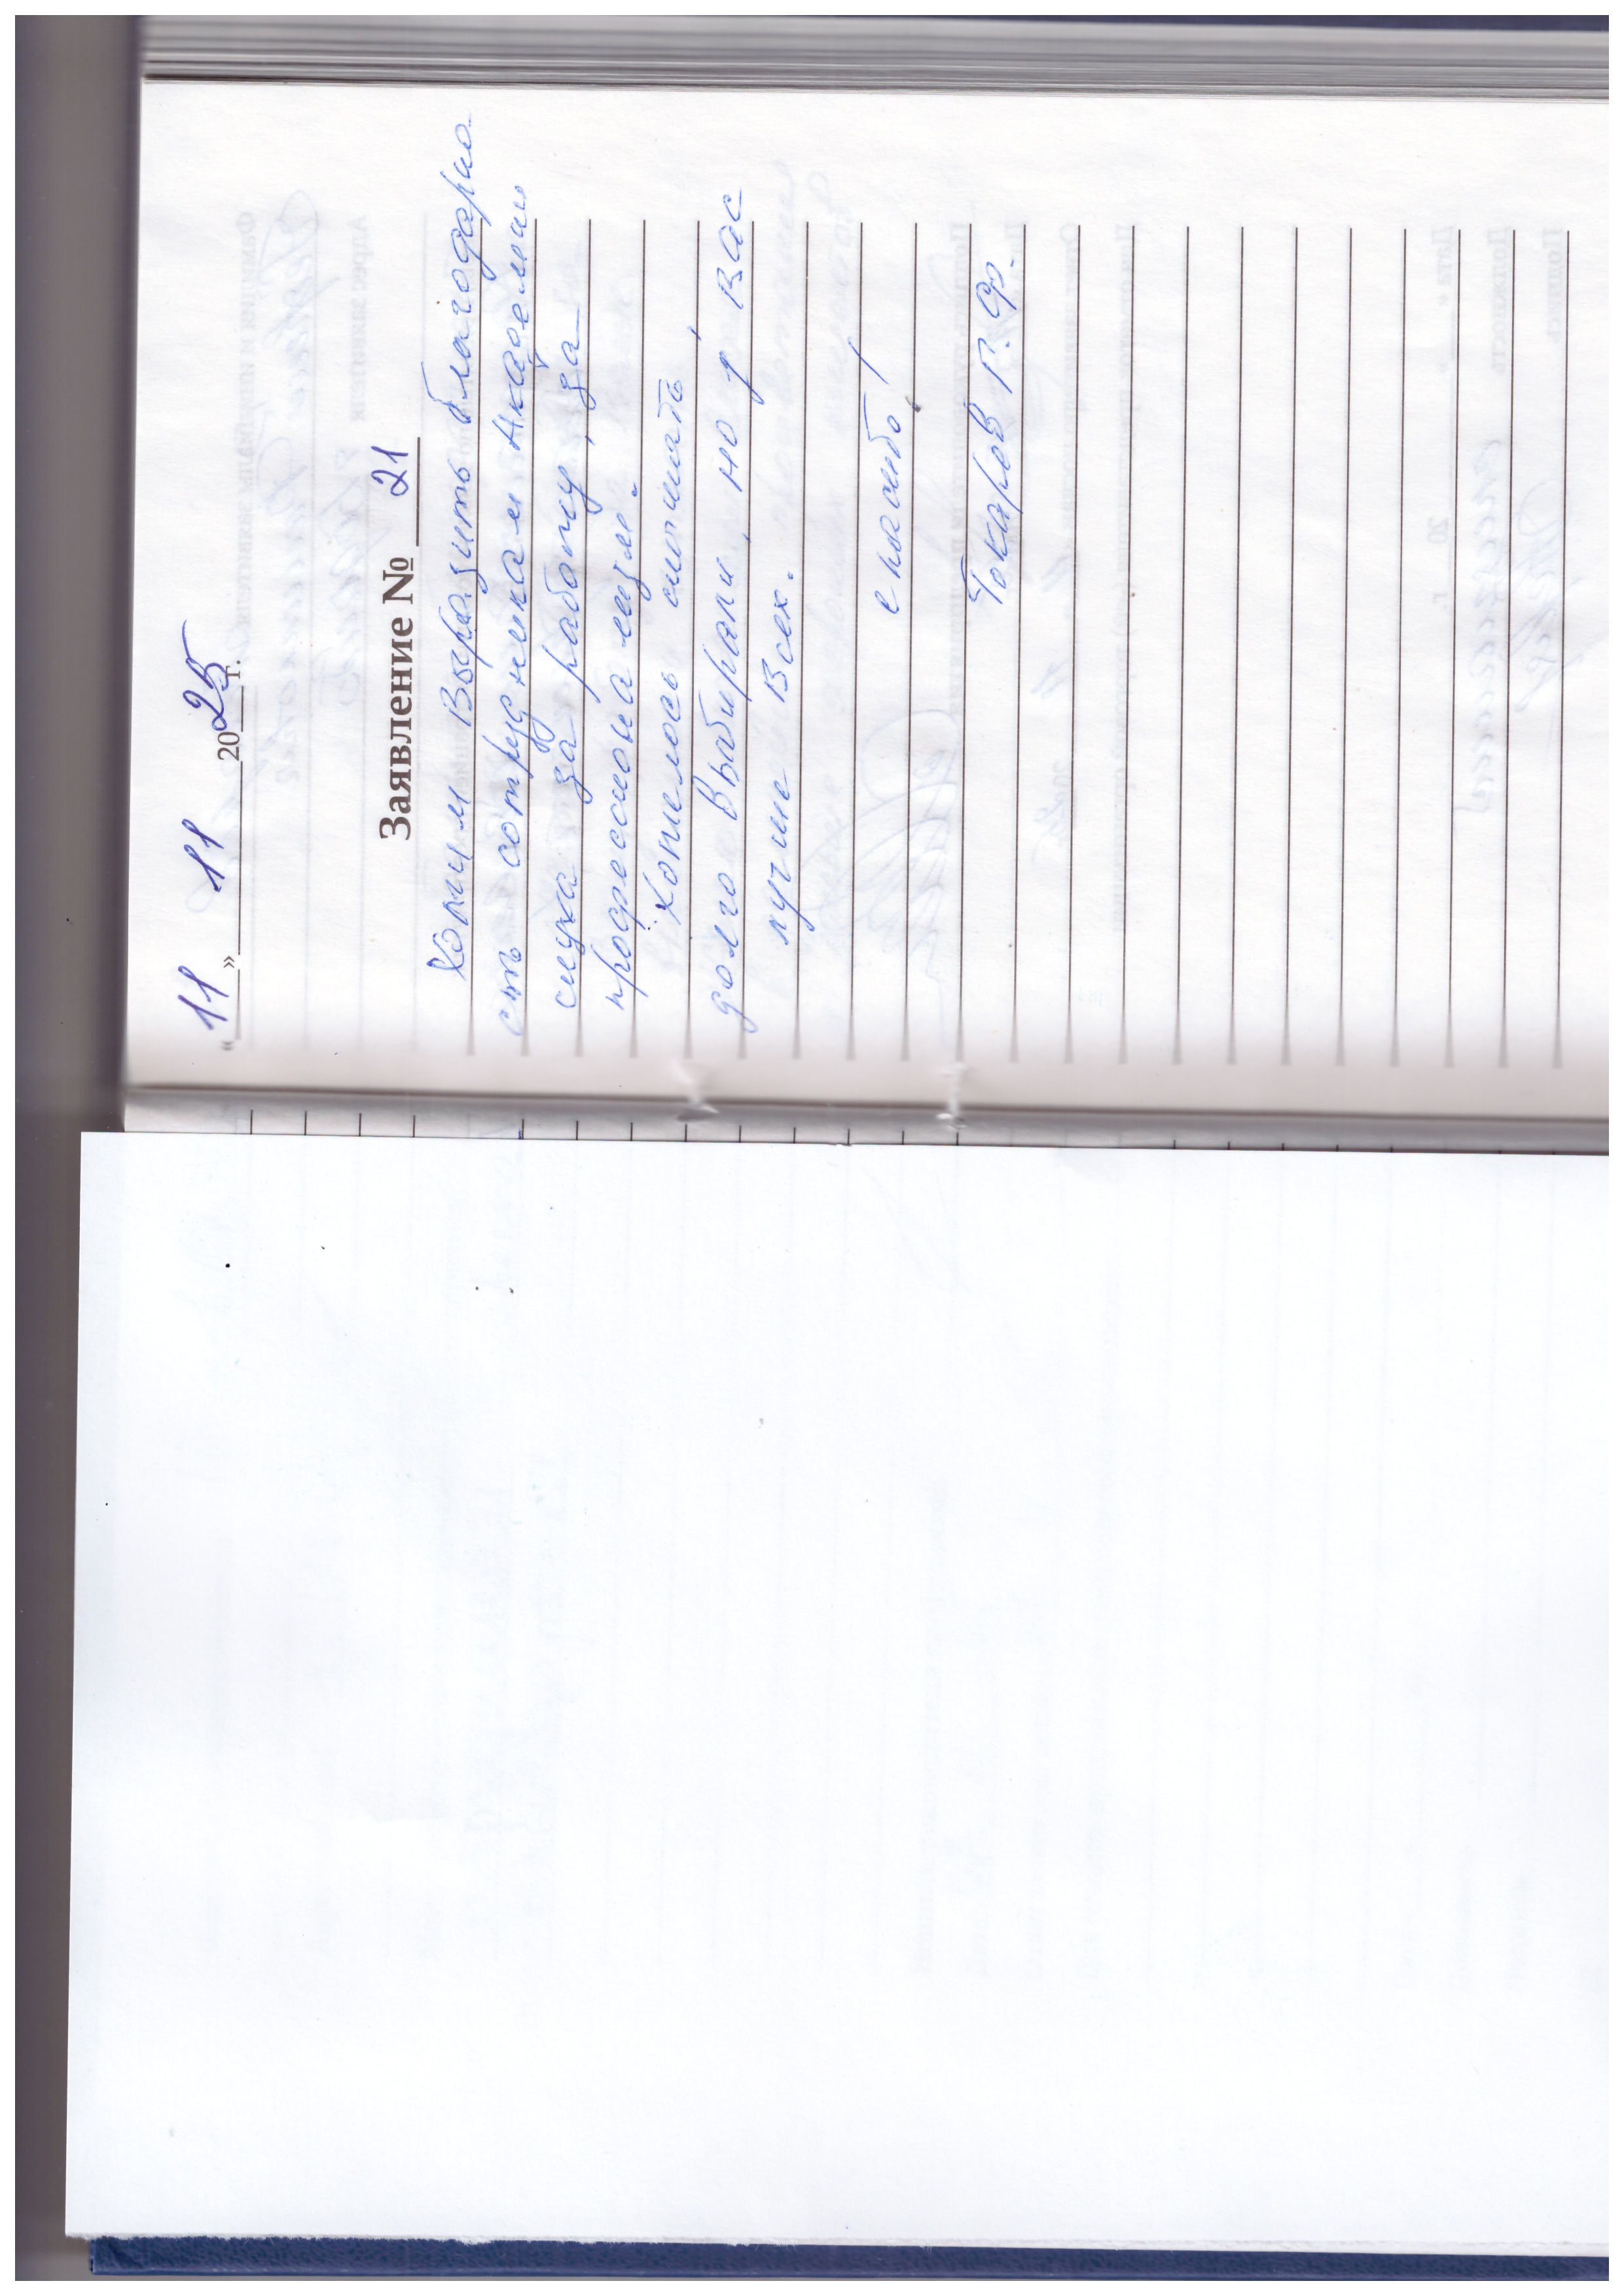 «11» 11 2025 г.
Заявление № 21
Хотим выразить благодарно
сть сотрудникам Академии
слуха за работу, за
профессионализм.
Хотелось слышать
долго выбирали, но у вас
лучше всех.
спасибо!
Токарев Г. Ф.